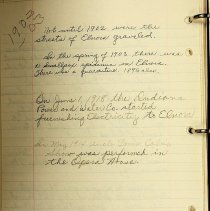 1902
03
Not until 1902 were the
streets of Elnora graveled.
In the spring of 1903 there was
a smallpox epidemic in Elnora.
There also a quarantine
On June 1, 1918 the Indiana
Power and Water Co. started
furnishing electricity to Elnora
In May 1904 Uncle Tom's Cabin
show was performed in
the Opera House.